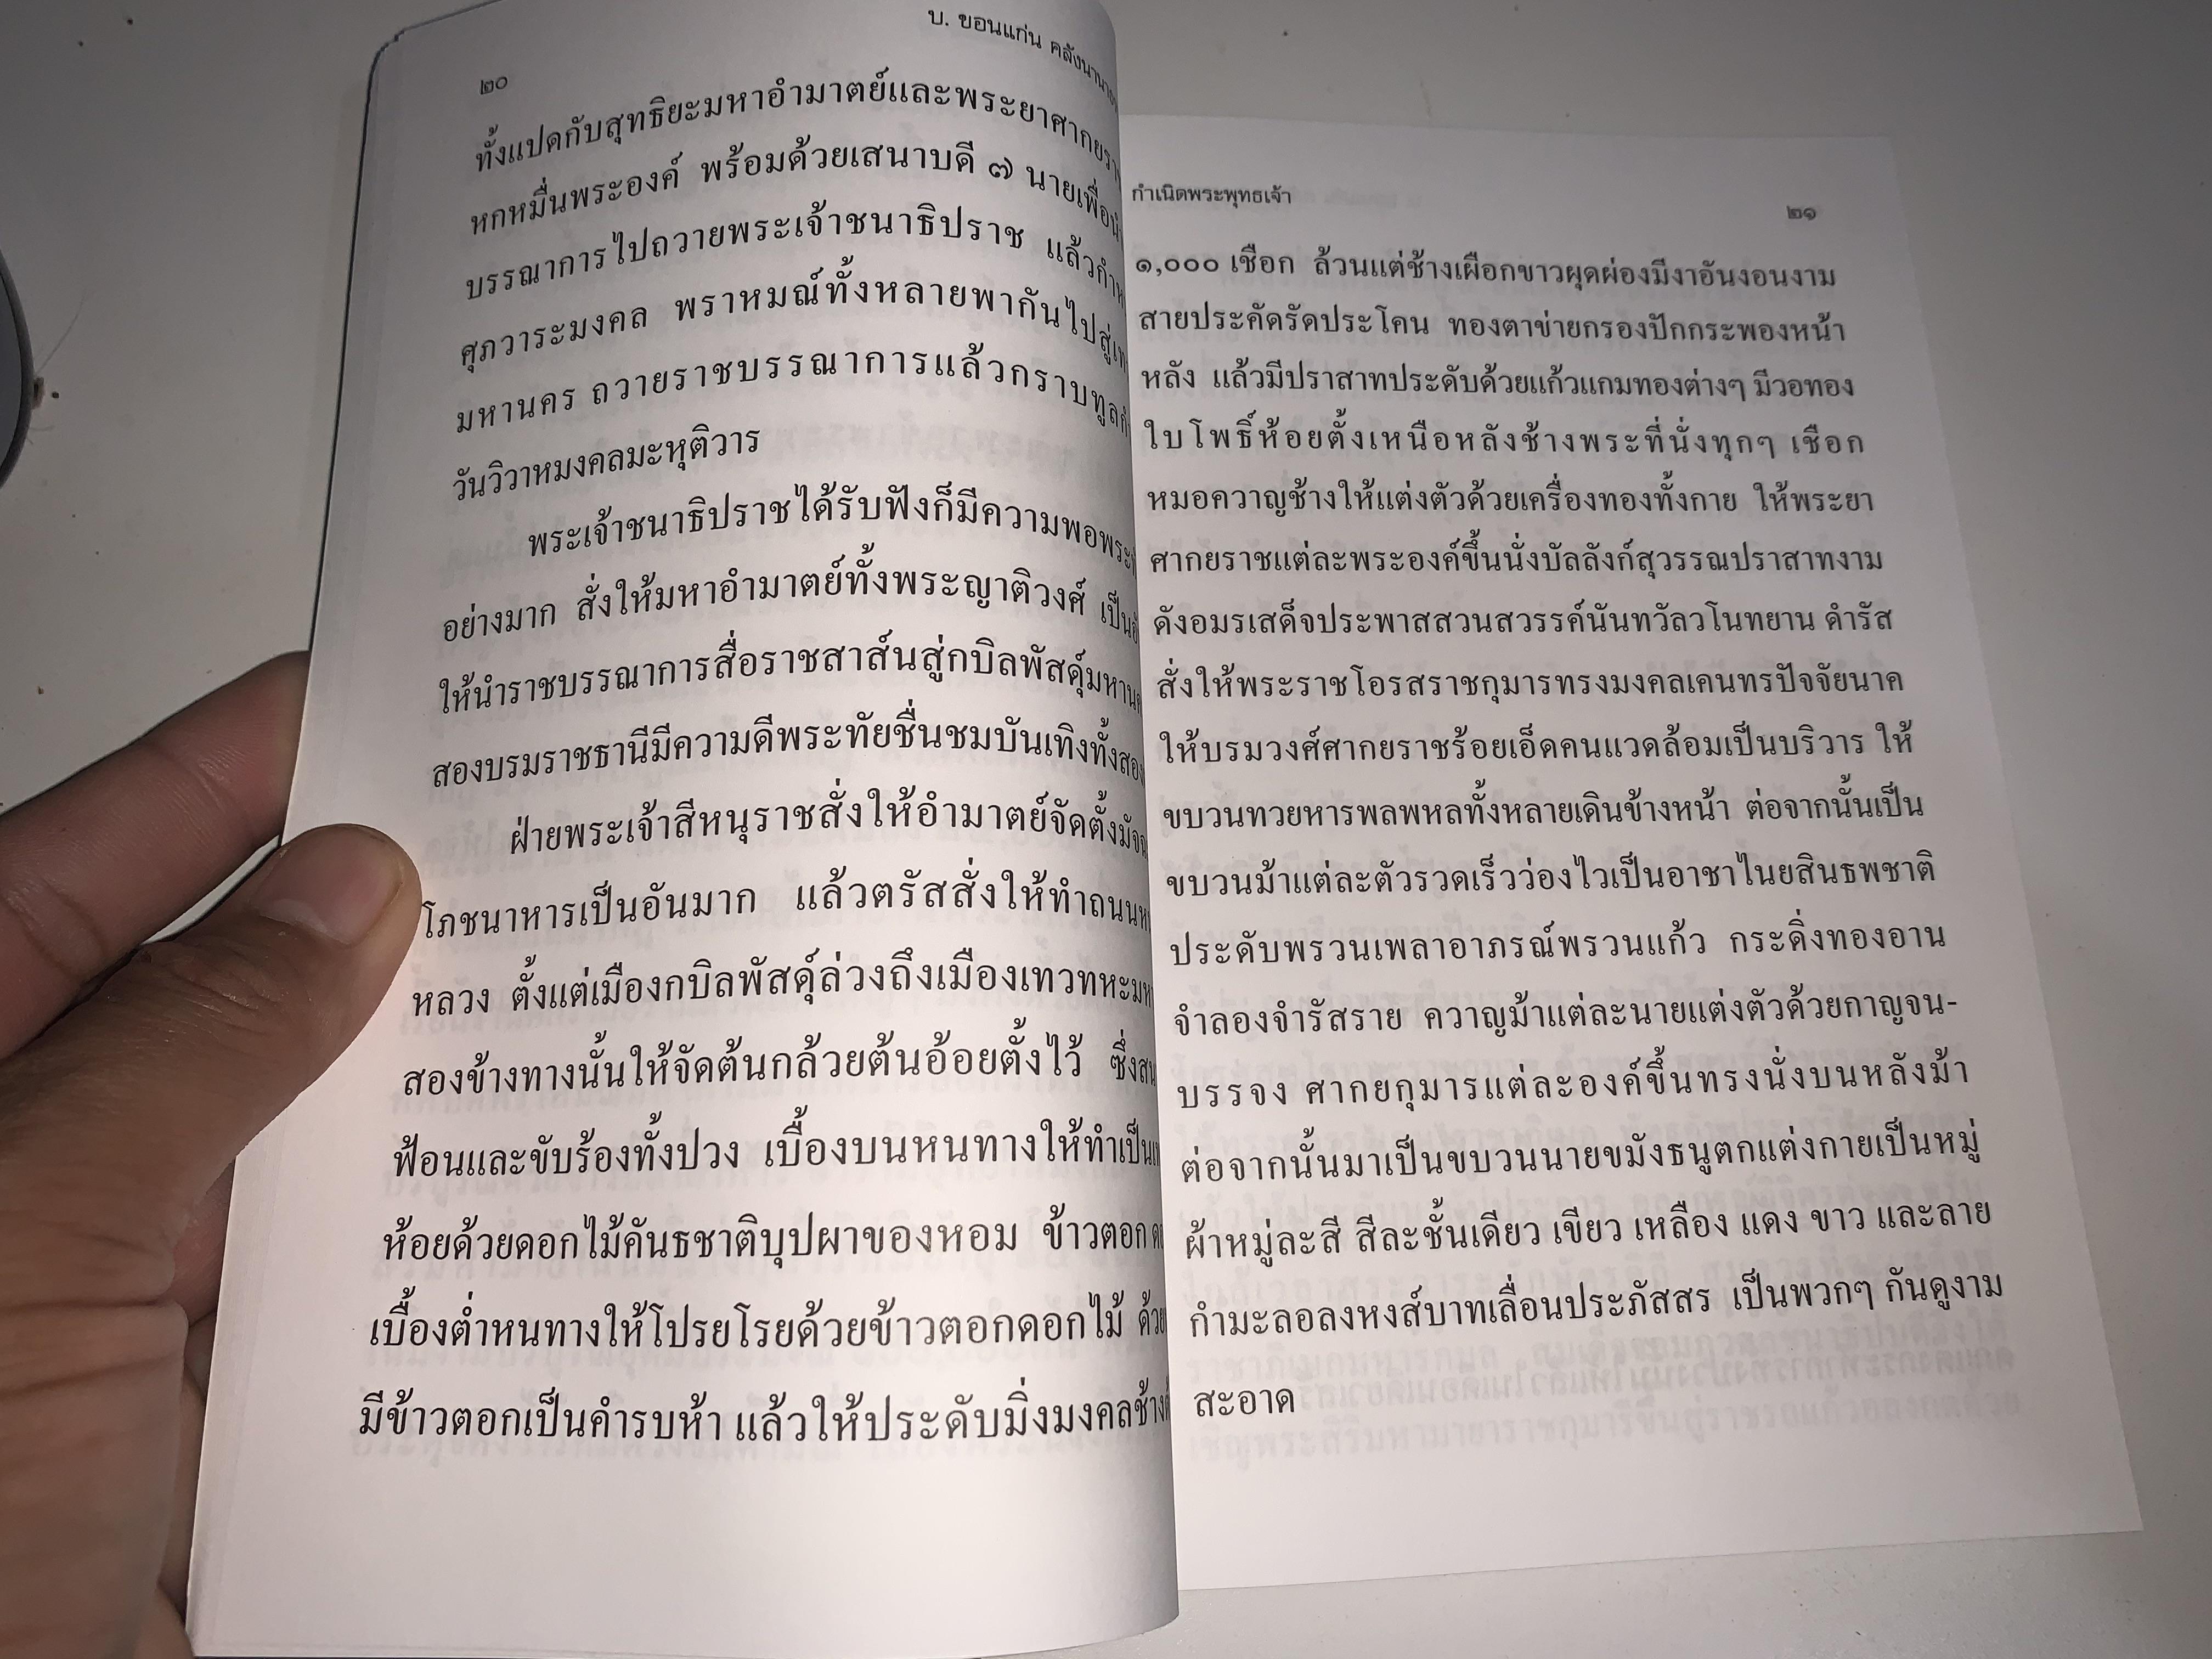 ๒๐
บ. ขอนแก่น คลังนานา
ทั้งแปดกับสุทธิยะมหาอำมาตย์และพระยาศากยรา
หกหมื่นพระองค์ พร้อมด้วยเสนาบดี ๗ นายเพื่อ
บรรณาการไปถวายพระเจ้าชนาธิปราช แล้วกำ
ศุภวาระมงคล พราหมณ์ทั้งหลายพากันไปสู่
มหานคร ถวายราชบรรณาการแล้วกราบทูล
วันวิวาหมงคลมะหุติวาร
พระเจ้าชนาธิปราชได้รับฟังก็มีความพอพระ
อย่างมาก สั่งให้มหาอำมาตย์ทั้งพระญาติวงศ์ เป็น
ให้นำราชบรรณาการสื่อราชสาส์นสู่กบิลพัสดุ์มหาน
สองบรมราชธานีมีความดีพระทัยชื่นชมบันเทิงทั้งสอง
ฝ่ายพระเจ้าสีหนุราชสั่งให้อำมาตย์จัดตั้งมัจ
โภชนาหารเป็นอันมาก แล้วตรัสสั่งให้ทำถนน
หลวง ตั้งแต่เมืองกบิลพัสดุ์ล่วงถึงเมืองเทวทหะ
สองข้างทางนั้นให้จัดต้นกล้วยต้นอ้อยตั้งไว้ ซึ่ง
ฟ้อนและขับร้องทั้งปวง เบื้องบนหนทางให้ทำเป็น
ห้อยด้วยดอกไม้คันธชาติบุปผาของหอม ข้าวตอก
เบื้องต่ำหนทางให้โปรยโรยด้วยข้าวตอกดอกไม้ ด้วย
มีข้าวตอกเป็นคำรบห้า แล้วให้ประดับมิ่งมงคลช้าง
กำเนิดพระพุทธเจ้า
๒๑
๑,๐๐๐ เชือก ล้วนแต่ช้างเผือกขาวผุดผ่องมีงาอันงอนงาม
สายประคัดรัดประโคน ทองตาข่ายกรองปักกระพองหน้า
หลัง แล้วมีปราสาทประดับด้วยแก้วแกมทองต่างๆ มีวอทอง
ใบโพธิ์ห้อยตั้งเหนือหลังช้างพระที่นั่งทุกๆ เชือก
หมอควาญช้างให้แต่งตัวด้วยเครื่องทองทั้งกาย ให้พระยา
ศากยราชแต่ละพระองค์ขึ้นนั่งบัลลังก์สุวรรณปราสาทงาม
ดังอมรเสด็จประพาสสวนสวรรค์นันทวัลวโนทยาน ดำรัส
สั่งให้พระราชโอรสราชกุมารทรงมงคลเคนทรปัจจัยนาค
ให้บรมวงศ์ศากยราชร้อยเอ็ดคนแวดล้อมเป็นบริวาร ให้
ขบวนทวยหารพลพหลทั้งหลายเดินข้างหน้า ต่อจากนั้นเป็น
ขบวนม้าแต่ละตัวรวดเร็วว่องไวเป็นอาชาไนยสินธพชาติ
ประดับพรวนเพลาอาภรณ์พรวนแก้ว กระดิ่งทองอาน
จำลองจำรัสราย ควาญม้าแต่ละนายแต่งตัวด้วยกาญจน-
บรรจง ศากยกุมารแต่ละองค์ขึ้นทรงนั่งบนหลังม้า
ต่อจากนั้นมาเป็นขบวนนายขมังธนูตกแต่งกายเป็นหมู่
ผ้าหมู่ละสี สีละชั้นเดียว เขียว เหลือง แดง ขาว และลาย
กำมะลอลงหงส์บาทเลื่อนประภัสสร เป็นพวกๆ กันดูงาม
สะอาด